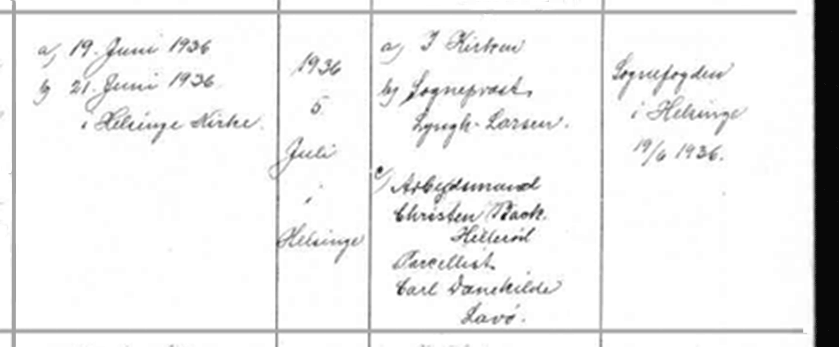 a, 19. Juni 1936
b, 21. Juni 1936
i Helsinge Kirke.
1936
5.
Juli
i
Helsinge
a, I Kirken
b, Sognepræst
Lyngh-Larsen.
c, Arbejdsmand
Christen Back.
Hillerød
Parcellist
Carl Danekilde
Lavø.
Sognefogden
i Helsinge
19/6 1936.